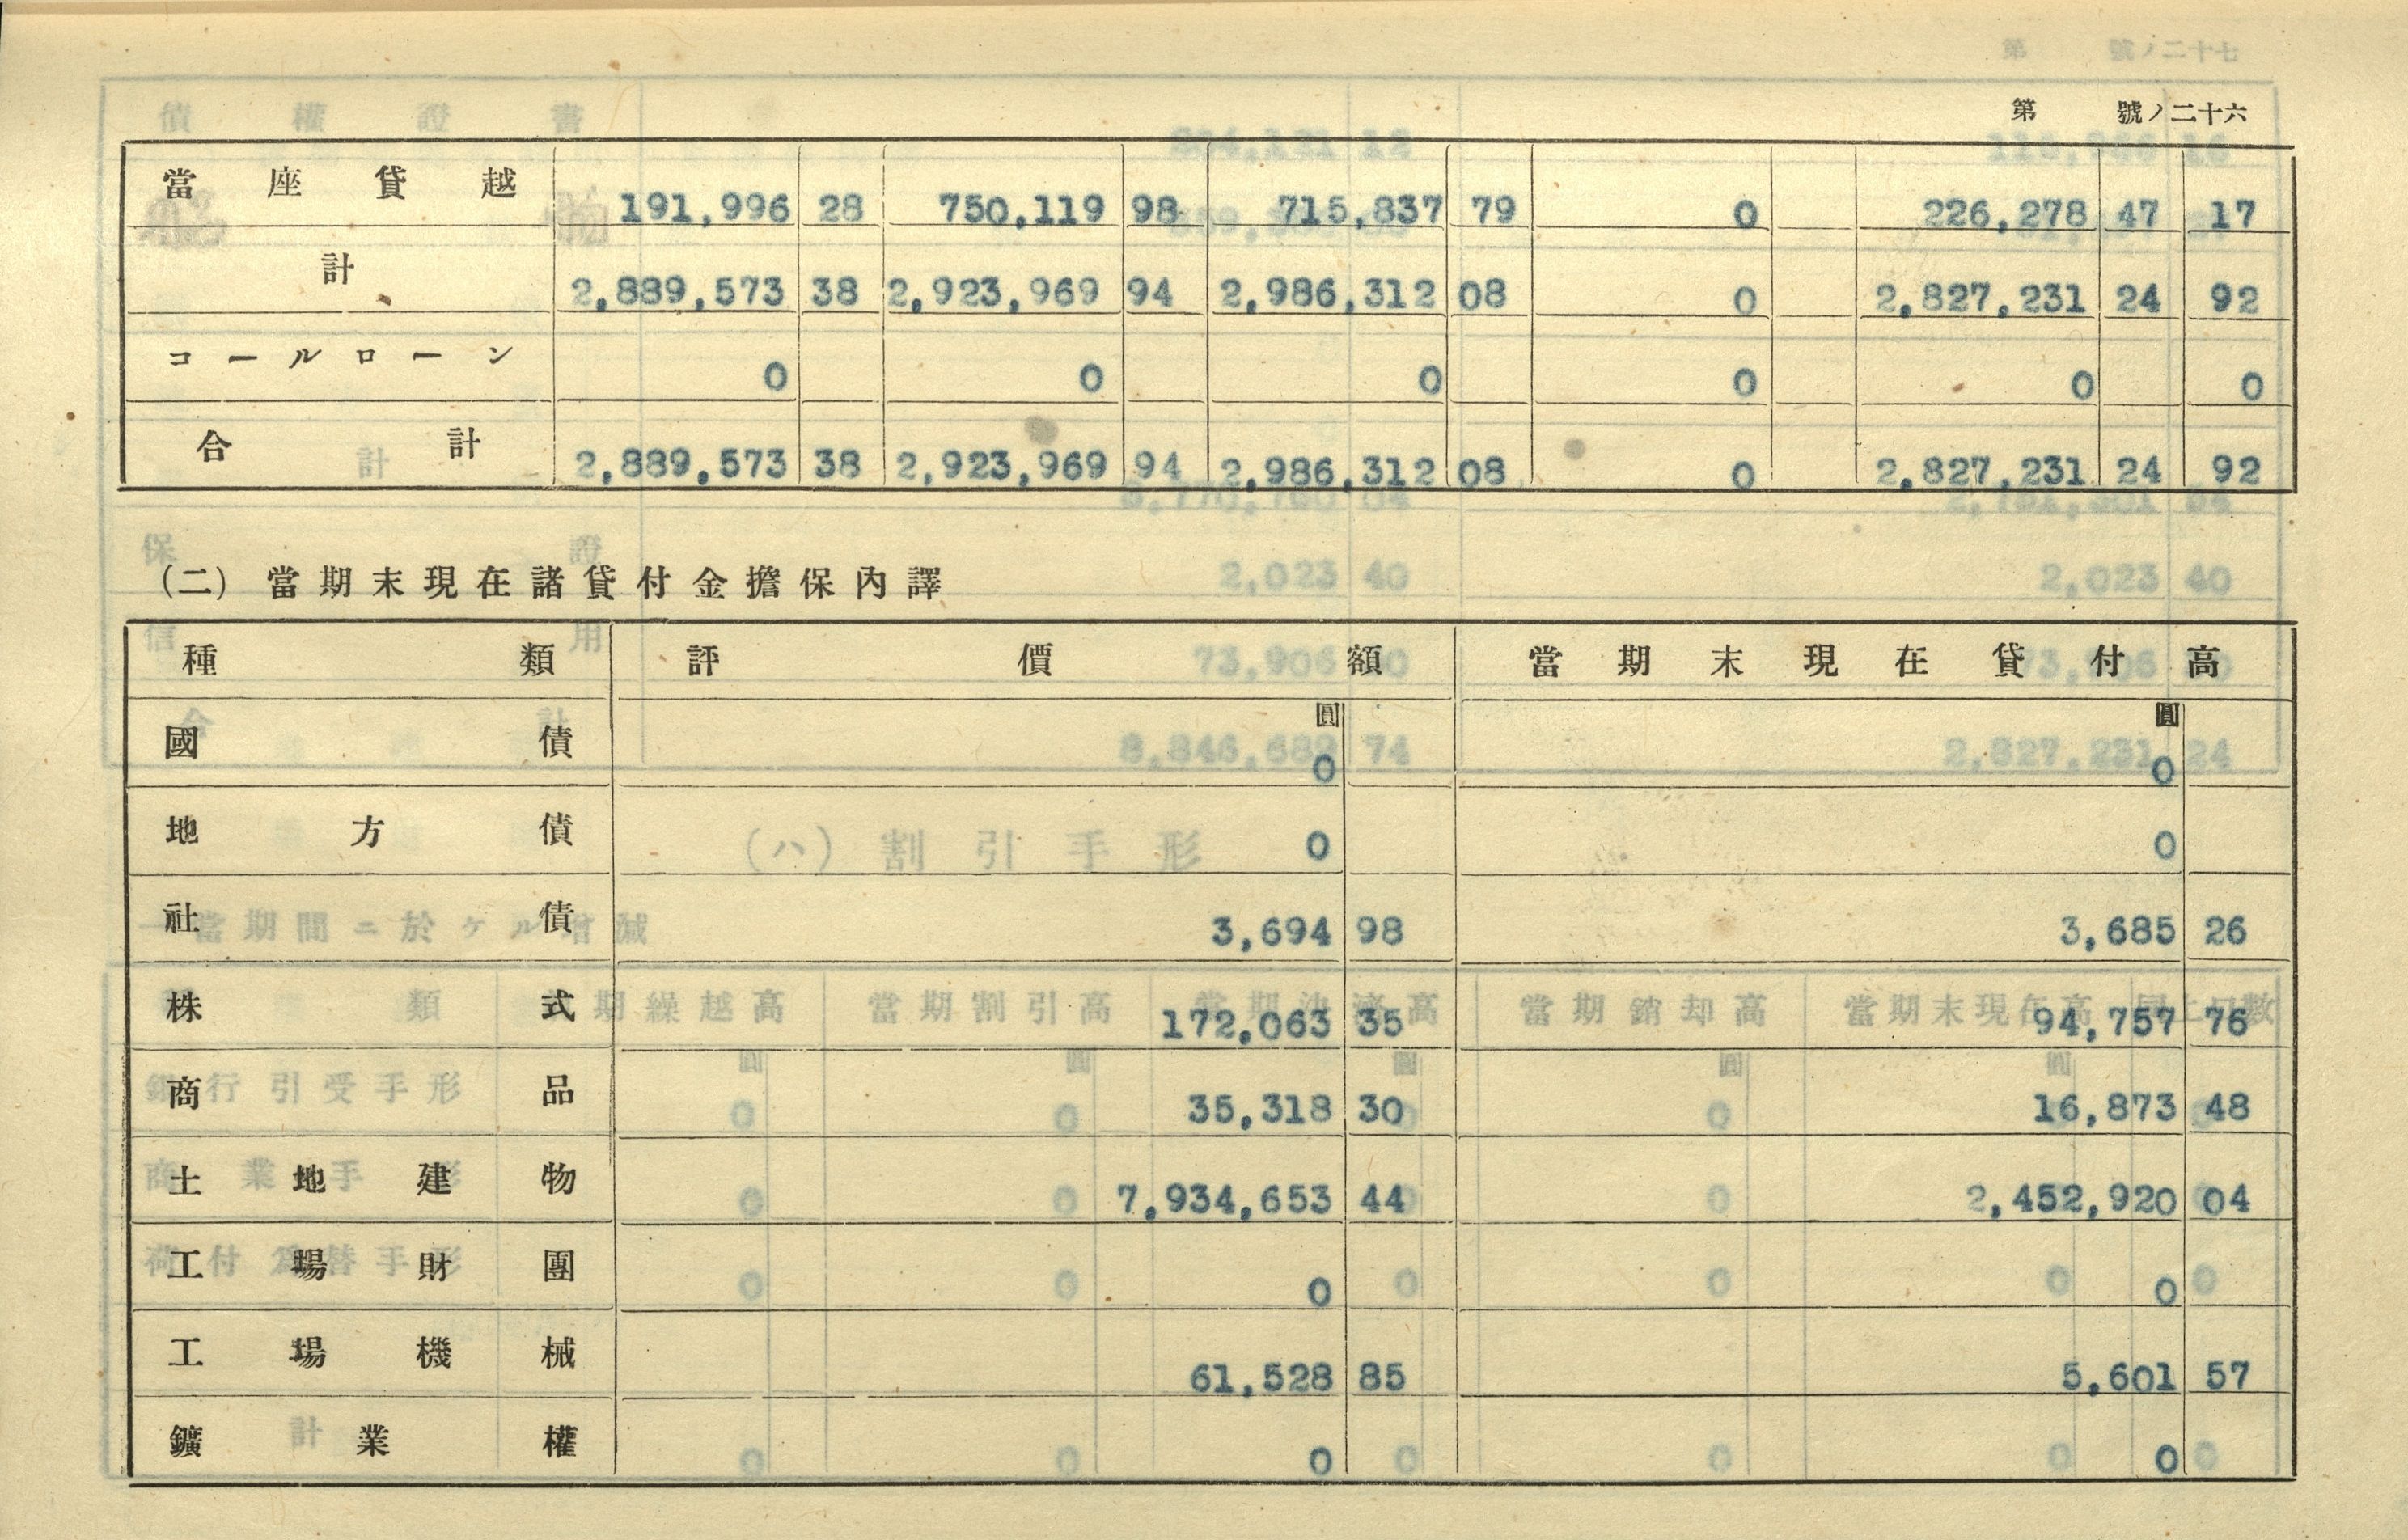 第 號ノ二十六
當座貸越 191,996 28 750,119 98 715,837 79 0 226,278 47 17
計 2,889,573 38 2,923,969 94 2,986,312 08 0 2,827,231 24 92
コールローン 0 0 0 0 0 0
合計 2,889,573 38 2,923,969 94 2,986,312 08 0 2,827,231 24 92
(二) 當期末現在諸貸付金擔保內譯
種類 評價額 當期末現在貸付高
圓 圓
國債 0 0
地方債 0 0
社債 3,694 98 3,685 26
株式 172,063 35 94,757 76
商品 35,318 30 16,873 48
土地建物 7,934,653 44 2,452,920 04
工場財團 0 0
工場機械 61,528 85 5,601 57
鑛業權 0 0